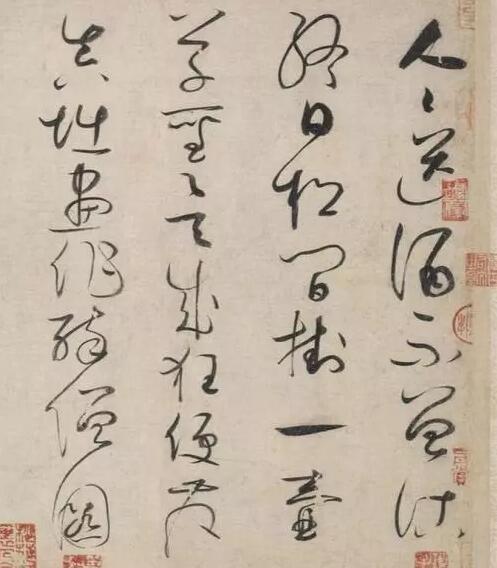 人〻送酒不曾沽
終日松間掛一壺
草聖欲成狂便發
真堪畫作醉僧圖